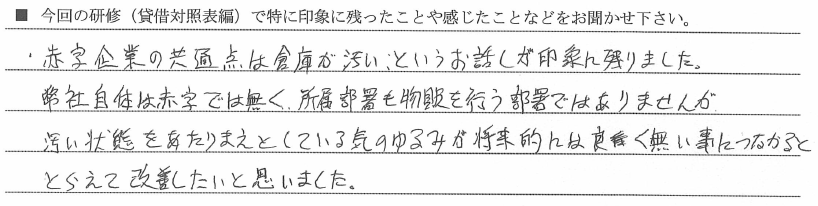 ■ 今回の研修（貸借対照表編）で特に印象に残ったことや感じたことなどをお聞かせ下さい。
・赤字企業の共通点は倉庫が汚い、というお話しが印象に残りました。
弊社自体は赤字では無く、所属部署も物販を行う部署ではありませんが
汚い状態をあたりまえとしている気のゆるみが将来的には良く無い事につながると
とらえて改善したいと思いました。